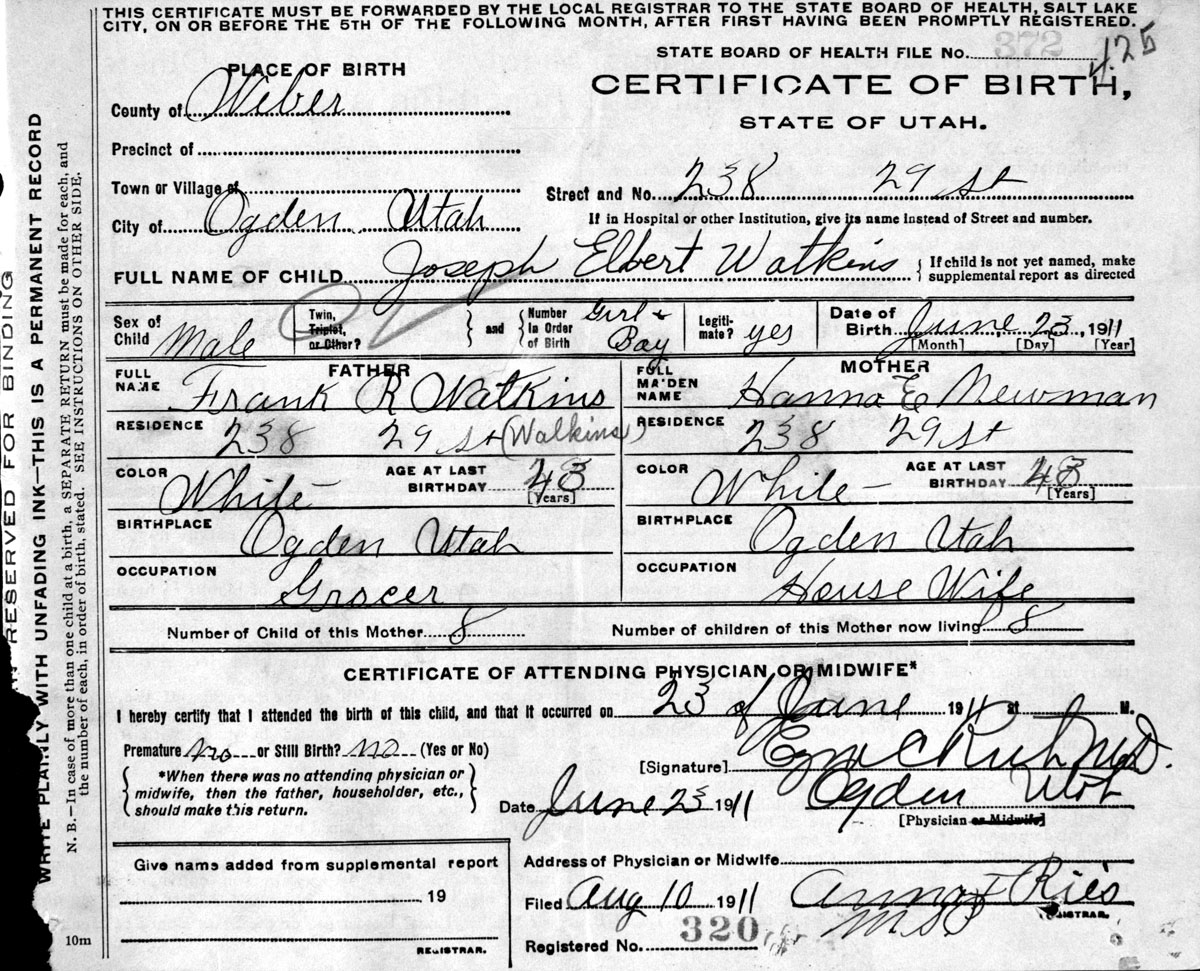 THIS CERTIFICATE MUST BE FORWARDED BY THE LOCAL REGISTRAR TO THE STATE BOARD OF HEALTH, SALT LAKE
CITY, ON OR BEFORE THE 5TH OF THE FOLLOWING MONTH, AFTER FIRST HAVING BEEN PROMPTLY REGISTERED.
STATE BOARD OF HEALTH FILE No. 372 425
PLACE OF BIRTH
CERTIFICATE OF BIRTH,
STATE OF UTAH.
County of Weber
Precinct of
Town or Village of
Street and No. 238 29 st
City of Ogden Utah
If in Hospital or other Institution, give its name instead of Street and number.
FULL NAME OF CHILD Joseph Elbert Watkins { If child is not yet named, make
supplemental report as directed
Sex of Child Male
Twin, Triplet, or Other? } and { Number in Order of Birth Girl & Boy
Legiti-mate? yes
Date of Birth June 23, 1911
[Month] [Day] [Year]
FATHER
MOTHER
FULL NAME Frank R Watkins
FULL MAIDEN NAME Hanna E Newman
RESIDENCE 238 29 st (Walkins)
RESIDENCE 238 29 st
COLOR White AGE AT LAST BIRTHDAY 43 [Years]
COLOR White AGE AT LAST BIRTHDAY 43 [Years]
BIRTHPLACE Ogden Utah
BIRTHPLACE Ogden Utah
OCCUPATION Grocer
OCCUPATION House Wife
Number of Child of this Mother 8 Number of children of this Mother now living 8
CERTIFICATE OF ATTENDING PHYSICIAN OR MIDWIFE*
I hereby certify that I attended the birth of this child, and that it occurred on 23 of June 1911 at M.
Premature No or Still Birth? No (Yes or No)
[Signature] M.D.
{ *When there was no attending physician or
midwife, then the father, householder, etc.,
should make this return. }
Date June 23 1911 Ogden Utah
[Physician or Midwife]
Give name added from supplemental report
19
REGISTRAR.
Address of Physician or Midwife
Filed Aug 10 1911 Anna F Ries
REGISTRAR.
Registered No. 320
10m
RESERVED FOR BINDING
WRITE PLAINLY WITH UNFADING INK—THIS IS A PERMANENT RECORD
N. B.—In case of more than one child at a birth, a SEPARATE RETURN must be made for each, and
the number of each, in order of birth, stated. SEE INSTRUCTIONS ON OTHER SIDE.